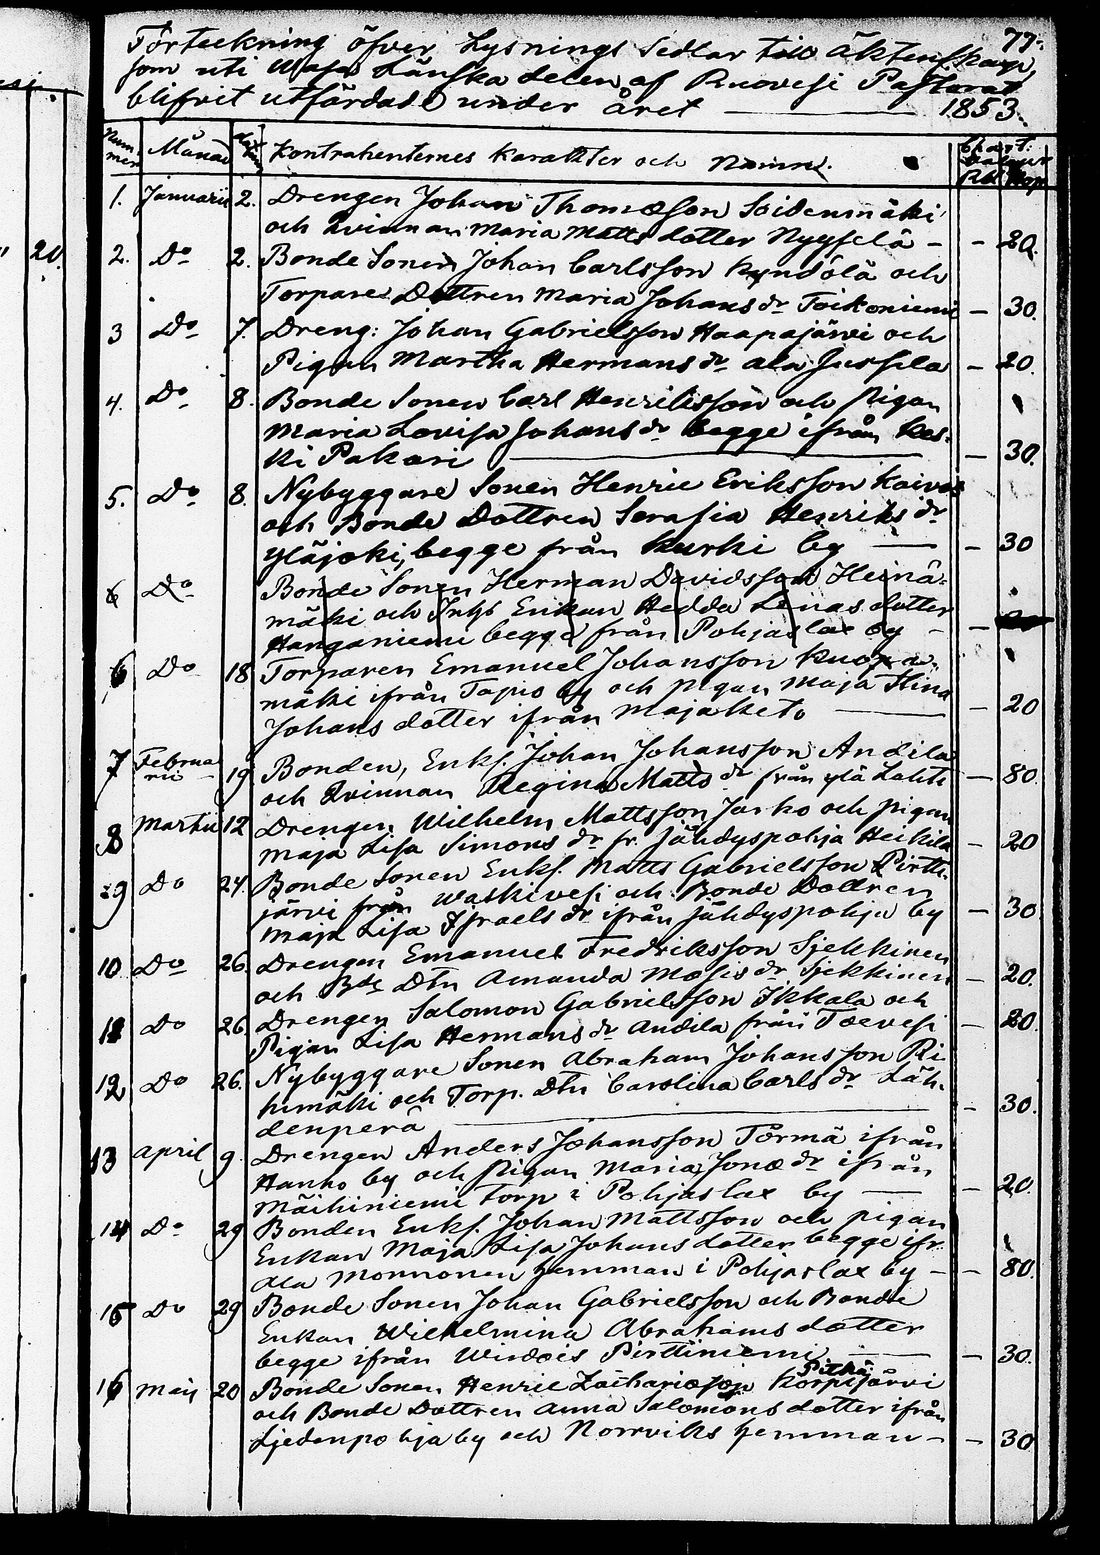 77.
Förteckning öfver Lysnings Sedlar till Äktenskap,
som uti Wasa Länska delen af Ruovesi Pastorat
blifvit utfärdade under året — 1853.
Nummer Månad Kontrahenternes Karakter och Namn.
1. Januarii 2. Drengen Johan Thomasson Soidenmäki
och kvinnan Maria Matts dotter Nyyselä - - 20.
2. Do 2. Bonde Sonen Johan Carlsson och
Torpare Dottren Maria Johans dr Toikoniemi - 30.
3 Do 7. Dreng: Johan Gabrielsson Haapajärvi och
Pigan Martha Hermans dr ala Jussila - 20.
4. Do 8. Bonde Sonen Carl Henriksson och pigan
Maria Lovisa Johans dr begge ifrån Kes-
ki Pakari — - 30.
5. Do 8. Nybyggare Sonen Henric Eriksson
och Bonde Dottren Serafia Henriks dr
Yläjoki, begge från Kurki by — - 30
6 Do Bonde Sonen Herman Davidsson Heinä-
mäki och Enkan Hedda Lenas dotter
Hanganiemi begge från Pohjaslax by - -
6 Do 18 Torparen Emanuel Johansson
mäki ifrån Tapio by och pigan Maja Stina
Johans dotter ifrån Majaketo — - 20
7 Februarii 19 Bonden, Enkl. Johan Johansson Andila
och Qvinnan Regina Matts dr från ylä Lahti - 80
8 Martii 12 Drengen Wilhelm Mattsson Jarko och pigan
Maja Lisa Simons dr fr. Jähdyspohja Heikilä - 20
9 Do 24. Bonde Sonen Enkl. Matts Gabrielsson Pirtti-
järvi från Waskivesi och Bonde Dottren
Maja Lisa Israels dr ifrån Jähdyspohja by - 30
10 Do 26. Drengen Emanuel Fredriksson Sjekkinen
och Bde Dtn Amanda Mosis dr Sjekkinen - 20.
11 Do 26 Drengen Salomon Gabrielsson Ikkala och
Pigan Lisa Hermans dr Andila från Toevesi - 20.
12 Do 26. Nybyggare Sonen Abraham Johansson Ri
himäki och Torp. Dtn Carolina Carls dr Läh-
denperä — - 30.
13 April 9. Drengen Anders Johansson Törmä ifrån
Hanho by och pigan Maria Jonæ dr ifrån
Mäihiniemi Torp i Pohjaslax by — - 20.
14 Do 29 Bonden Enkl. Johan Mattsson och pigan
Enkan Maja Lisa Johans dotter begge ifr.
ala Monnonen hemman i Pohjaslax by - - 80.
15 Do 29 Bonde Sonen Johan Gabrielsson och Bonde
Enkan Wilhelmina Abrahams dotter
begge ifrån Wirdois Pirttiniemi — - 30.
16 Maij 20 Bonde Sonen Henric Zachariasson Pitkä
Korpijärvi
och Bonde Dottren Anna Salomons dotter ifrån
Ljedenpohja by och Norrviks hemman - - 30
20.